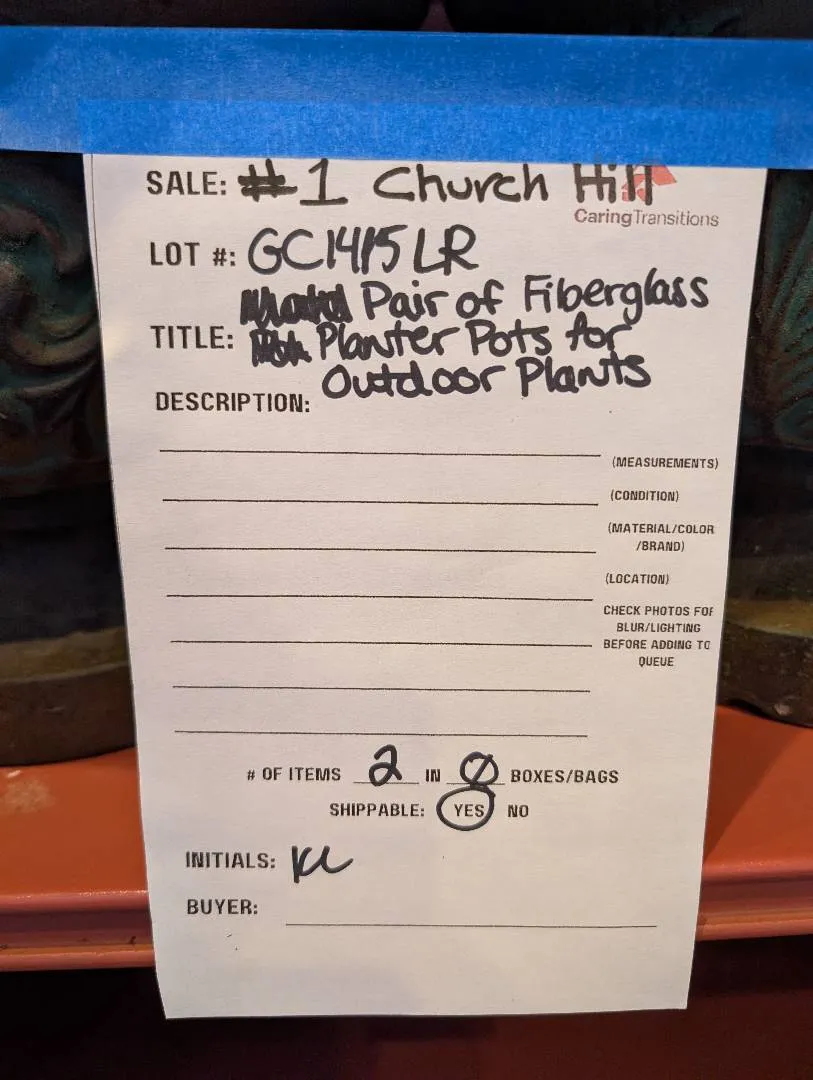 SALE: #1 Church Hill
CaringTransitions
LOT #: GC1415LR
Pair of Fiberglass
TITLE: Planter Pots for
Outdoor Plants
DESCRIPTION:
(MEASUREMENTS)
(CONDITION)
(MATERIAL/COLOR
/BRAND)
(LOCATION)
CHECK PHOTOS FOR
BLUR/LIGHTING
BEFORE ADDING TO
QUEUE
# OF ITEMS 2 IN Ø BOXES/BAGS
SHIPPABLE: YES NO
INITIALS:
BUYER: